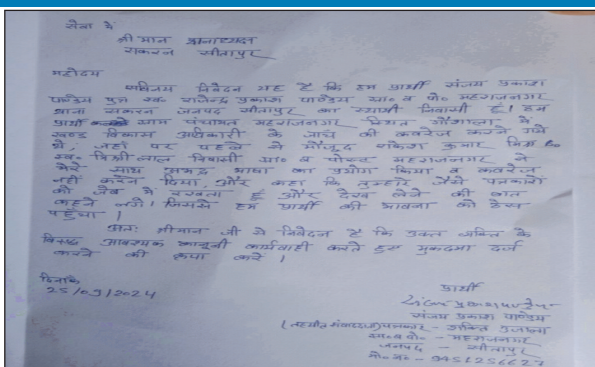 सेवा में
श्रीमान थानाध्यक्ष
सकरन सीतापुर
महोदय
सविनय निवेदन यह है कि हम प्रार्थी संजय प्रकाश
पाण्डेय पुत्र स्व. राजेन्द्र प्रकाश पाण्डेय ग्रा० व पो० महराजनगर
थाना सकरन जनपद सीतापुर का स्थायी निवासी हूँ। हम
प्रार्थी ग्राम पंचायत महराजनगर स्थित गौशाला में
खण्ड विकास अधिकारी के जांच की कवरेज करने गये
थे, जहाँ पर पहले से मौजूद राकेश कुमार मिश्र
स्व० मिश्रीलाल निवासी ग्रा० व पोस्ट महराजनगर ने
मेरे साथ अभद्र भाषा का प्रयोग किया व कवरेज
नहीं करने दिया, और कहा कि तुम्हारे जैसे पत्रकारों
को जेब में रखता हूँ और देख लेने की बात
कहने लगे। जिससे हम प्रार्थी की भावना को ठेस
पहुंचा।
अतः श्रीमान जी से निवेदन है कि उक्त व्यक्ति के
विरुद्ध आवश्यक कानूनी कार्यवाही करते हुए मुकदमा दर्ज
करने की कृपा करें।
दिनांक
25/09/2024
प्रार्थी
संजय प्रकाश पाण्डेय
संजय प्रकाश पाण्डेय
(तहसील संवाददाता) पत्रकार - शक्ति उजाला
ग्रा० व पो० - महराजनगर
जनपद - सीतापुर
मो० नं० - 9451256627